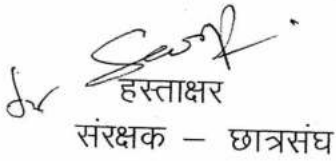 हस्ताक्षर
संरक्षक – छात्रसंघ